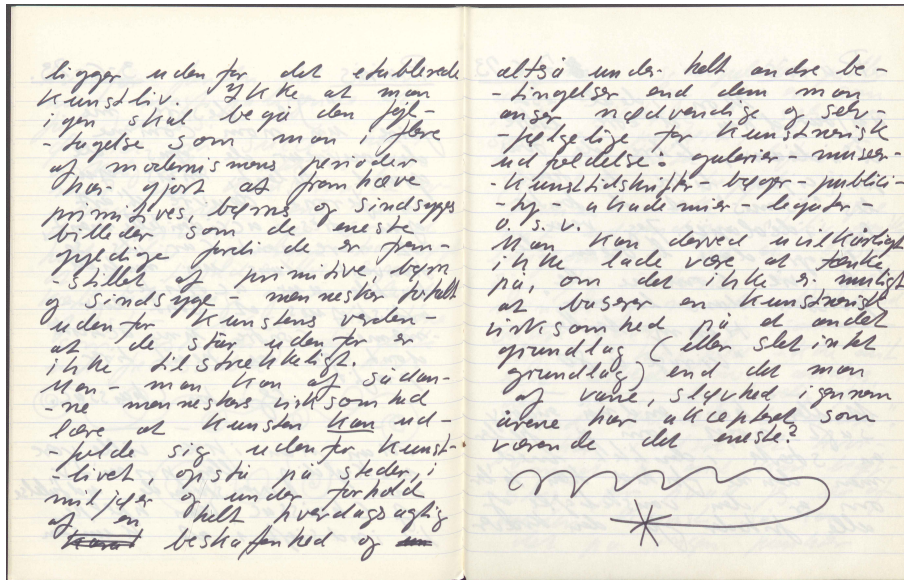 ligger uden for det etablerede
kunstliv. Ikke at man
igen skal begå den fejl-
-tagelse som man i flere
af modernismens perioder
har gjort at fremhæve
primitives, børns og sindssyges
billeder som de eneste
gyldige fordi de er frem-
-stillet af primitive, børn
og sindsyge - mennesker totalt
uden for kunstens verden -
at de står udenfor er
ikke tilstrækkeligt.
Men - man kan af sådan-
-ne menneskers virksomhed
lære at kunsten kan ud-
-folde sig udenfor kunst-
-livet, opstå på steder, i
miljøer og under forhold
af en helt hverdagsagtig
beskaffenhed og
altså under helt andre be-
-tingelser end dem man
anser nødvendige og selv-
-følgelige for kunstnerisk
udfoldelse: galerier - museer-
- kunsttidskrifter - bøger - publici-
-ty - akademier - legater -
o. s. v.
Man kan derved uvilkårligt
ikke lade være at tænke
på, om det ikke er muligt
at basere en kunstnerisk
virksomhed på et andet
grundlag (eller slet intet
grundlag) end det man
af vane, sløvhed igennem
årene har akcepteret som
værende det eneste?